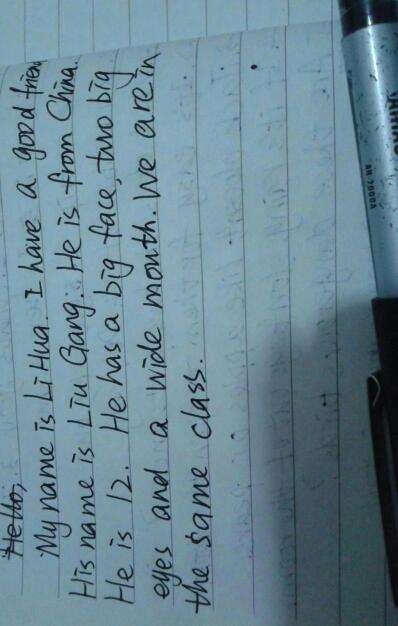 Hello,
My name is Li Hua. I have a good frien
His name is Liu Gang. He is from China.
He is 12. He has a big face, two big
eyes and a wide month. We are in
the same class.